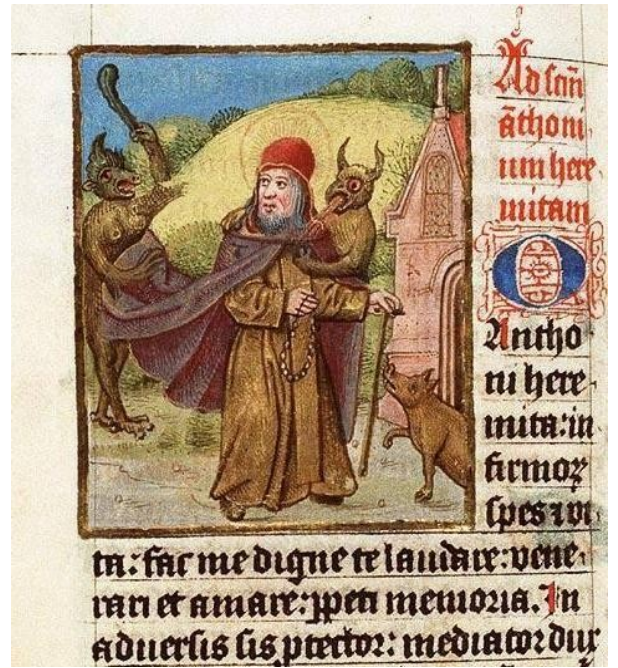 Ad scm̄
āthoni
um here
mitam
O
Antho
ni here
mita: in
firmoꝝ
spes ⁊ vi
ta: fac me digne te laudare: vene
rari et amare: ꝑpeti memoria. In
aduersis sis ꝓtector: mediator dux